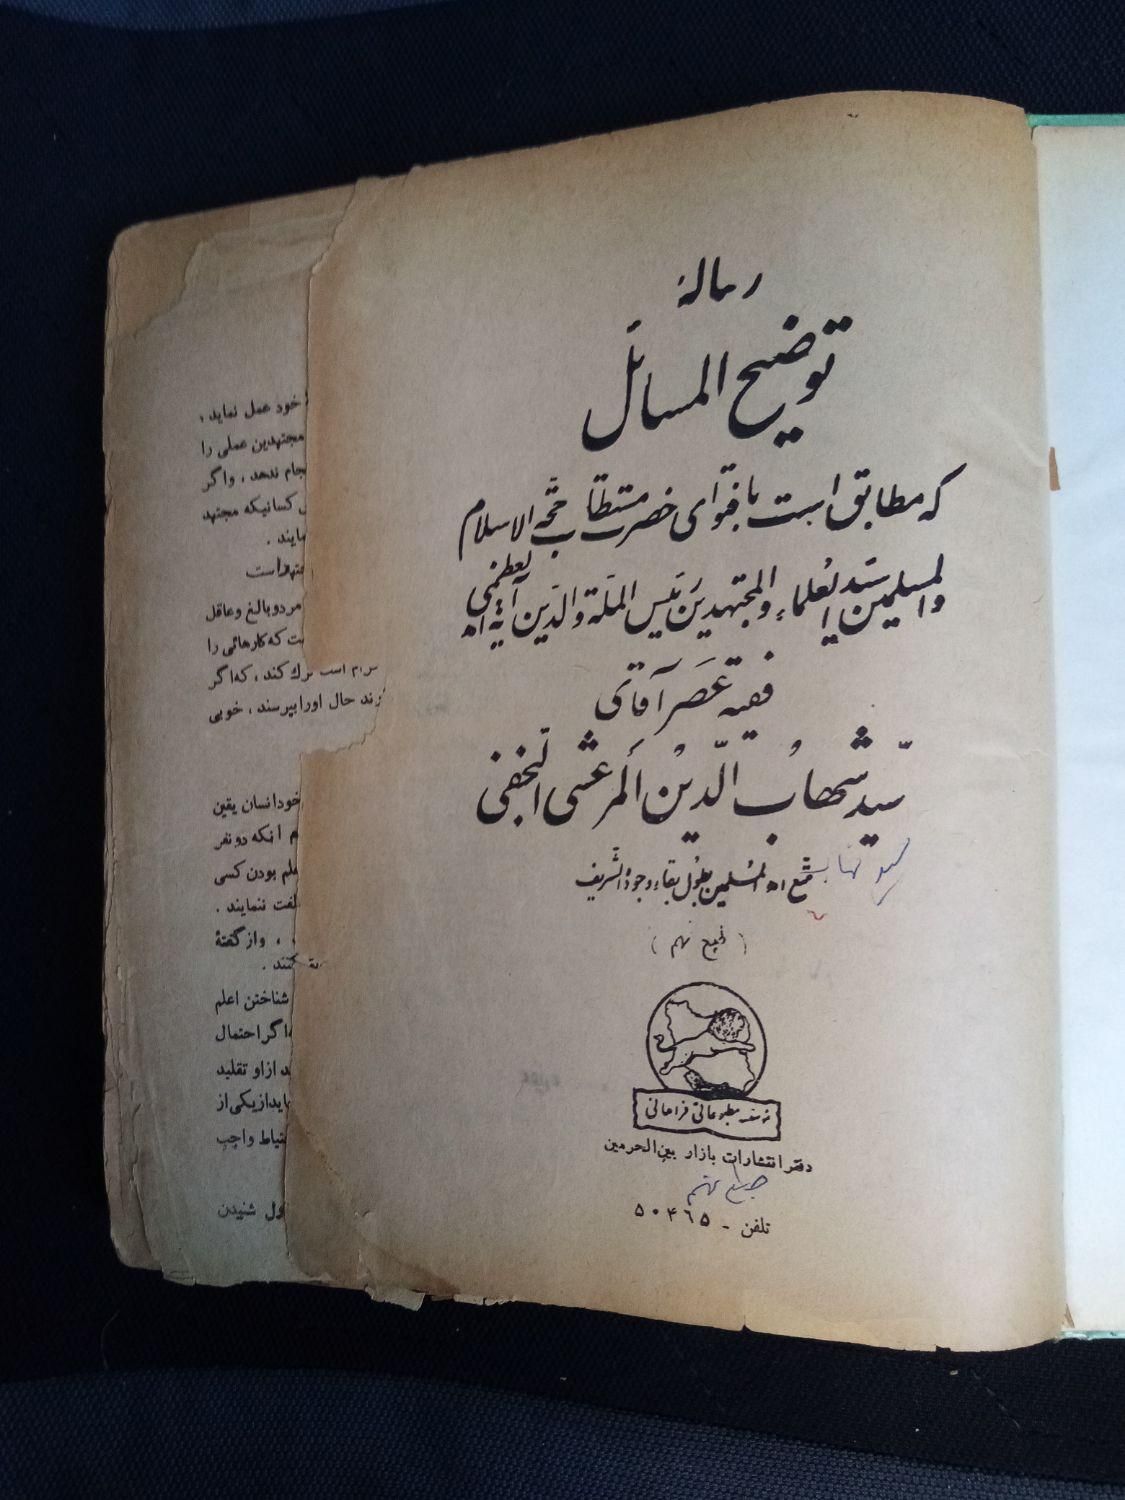 رسالهٔ
توضیح المسائل
که مطابق است با فتوای حضرت مستطاب حجّة الاسلام
والمسلمین سیّد العلماء والمجتهدین رئیس الملّة والدّین آیة الله العظمی
فقیه عصر آقای
سیّد شهاب الدّین المرعشی النجفی
متّع الله المسلمین بطول بقاء وجوده الشّریف
( طبع نهم )
مطبوعاتی فراهانی
دفتر انتشارات بازار بین‌الحرمین
تلفن - ۵۰۴۶۵
خود عمل نماید ،
مجتهدین عملی را
ندهد ، واگر
کسانیکه مجتهد
است
مرد و بالغ و عاقل
که کارهائی را
ترك کند ، که اگر
حال او را بپرسند ، خوبی
خود انسان یقین
آنکه دو نفر
بودن کسی
ننمایند .
، و از گفتهٔ
کنند .
شناختن اعلم
اگر احتمال
از او تقلید
باید از یکی از
واجب
شنیدن